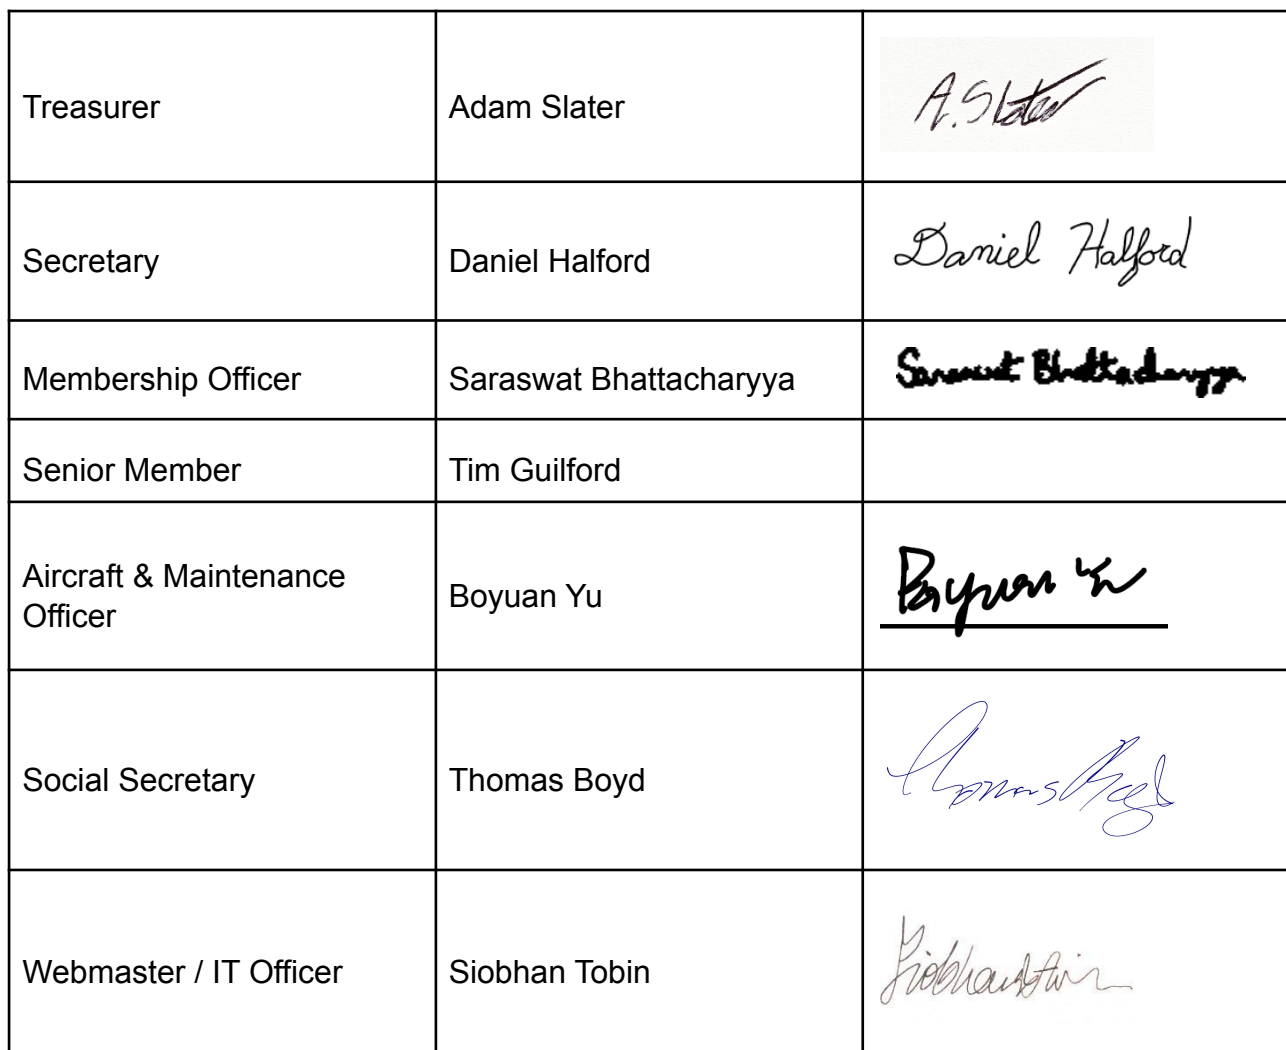 Treasurer Adam Slater A. Slater
Secretary Daniel Halford Daniel Halford
Membership Officer Saraswat Bhattacharyya Saraswat Bhattacharyya
Senior Member Tim Guilford
Aircraft & Maintenance
Officer Boyuan Yu Boyuan Yu
Social Secretary Thomas Boyd Thomas Boyd
Webmaster / IT Officer Siobhan Tobin Siobhan Tobin